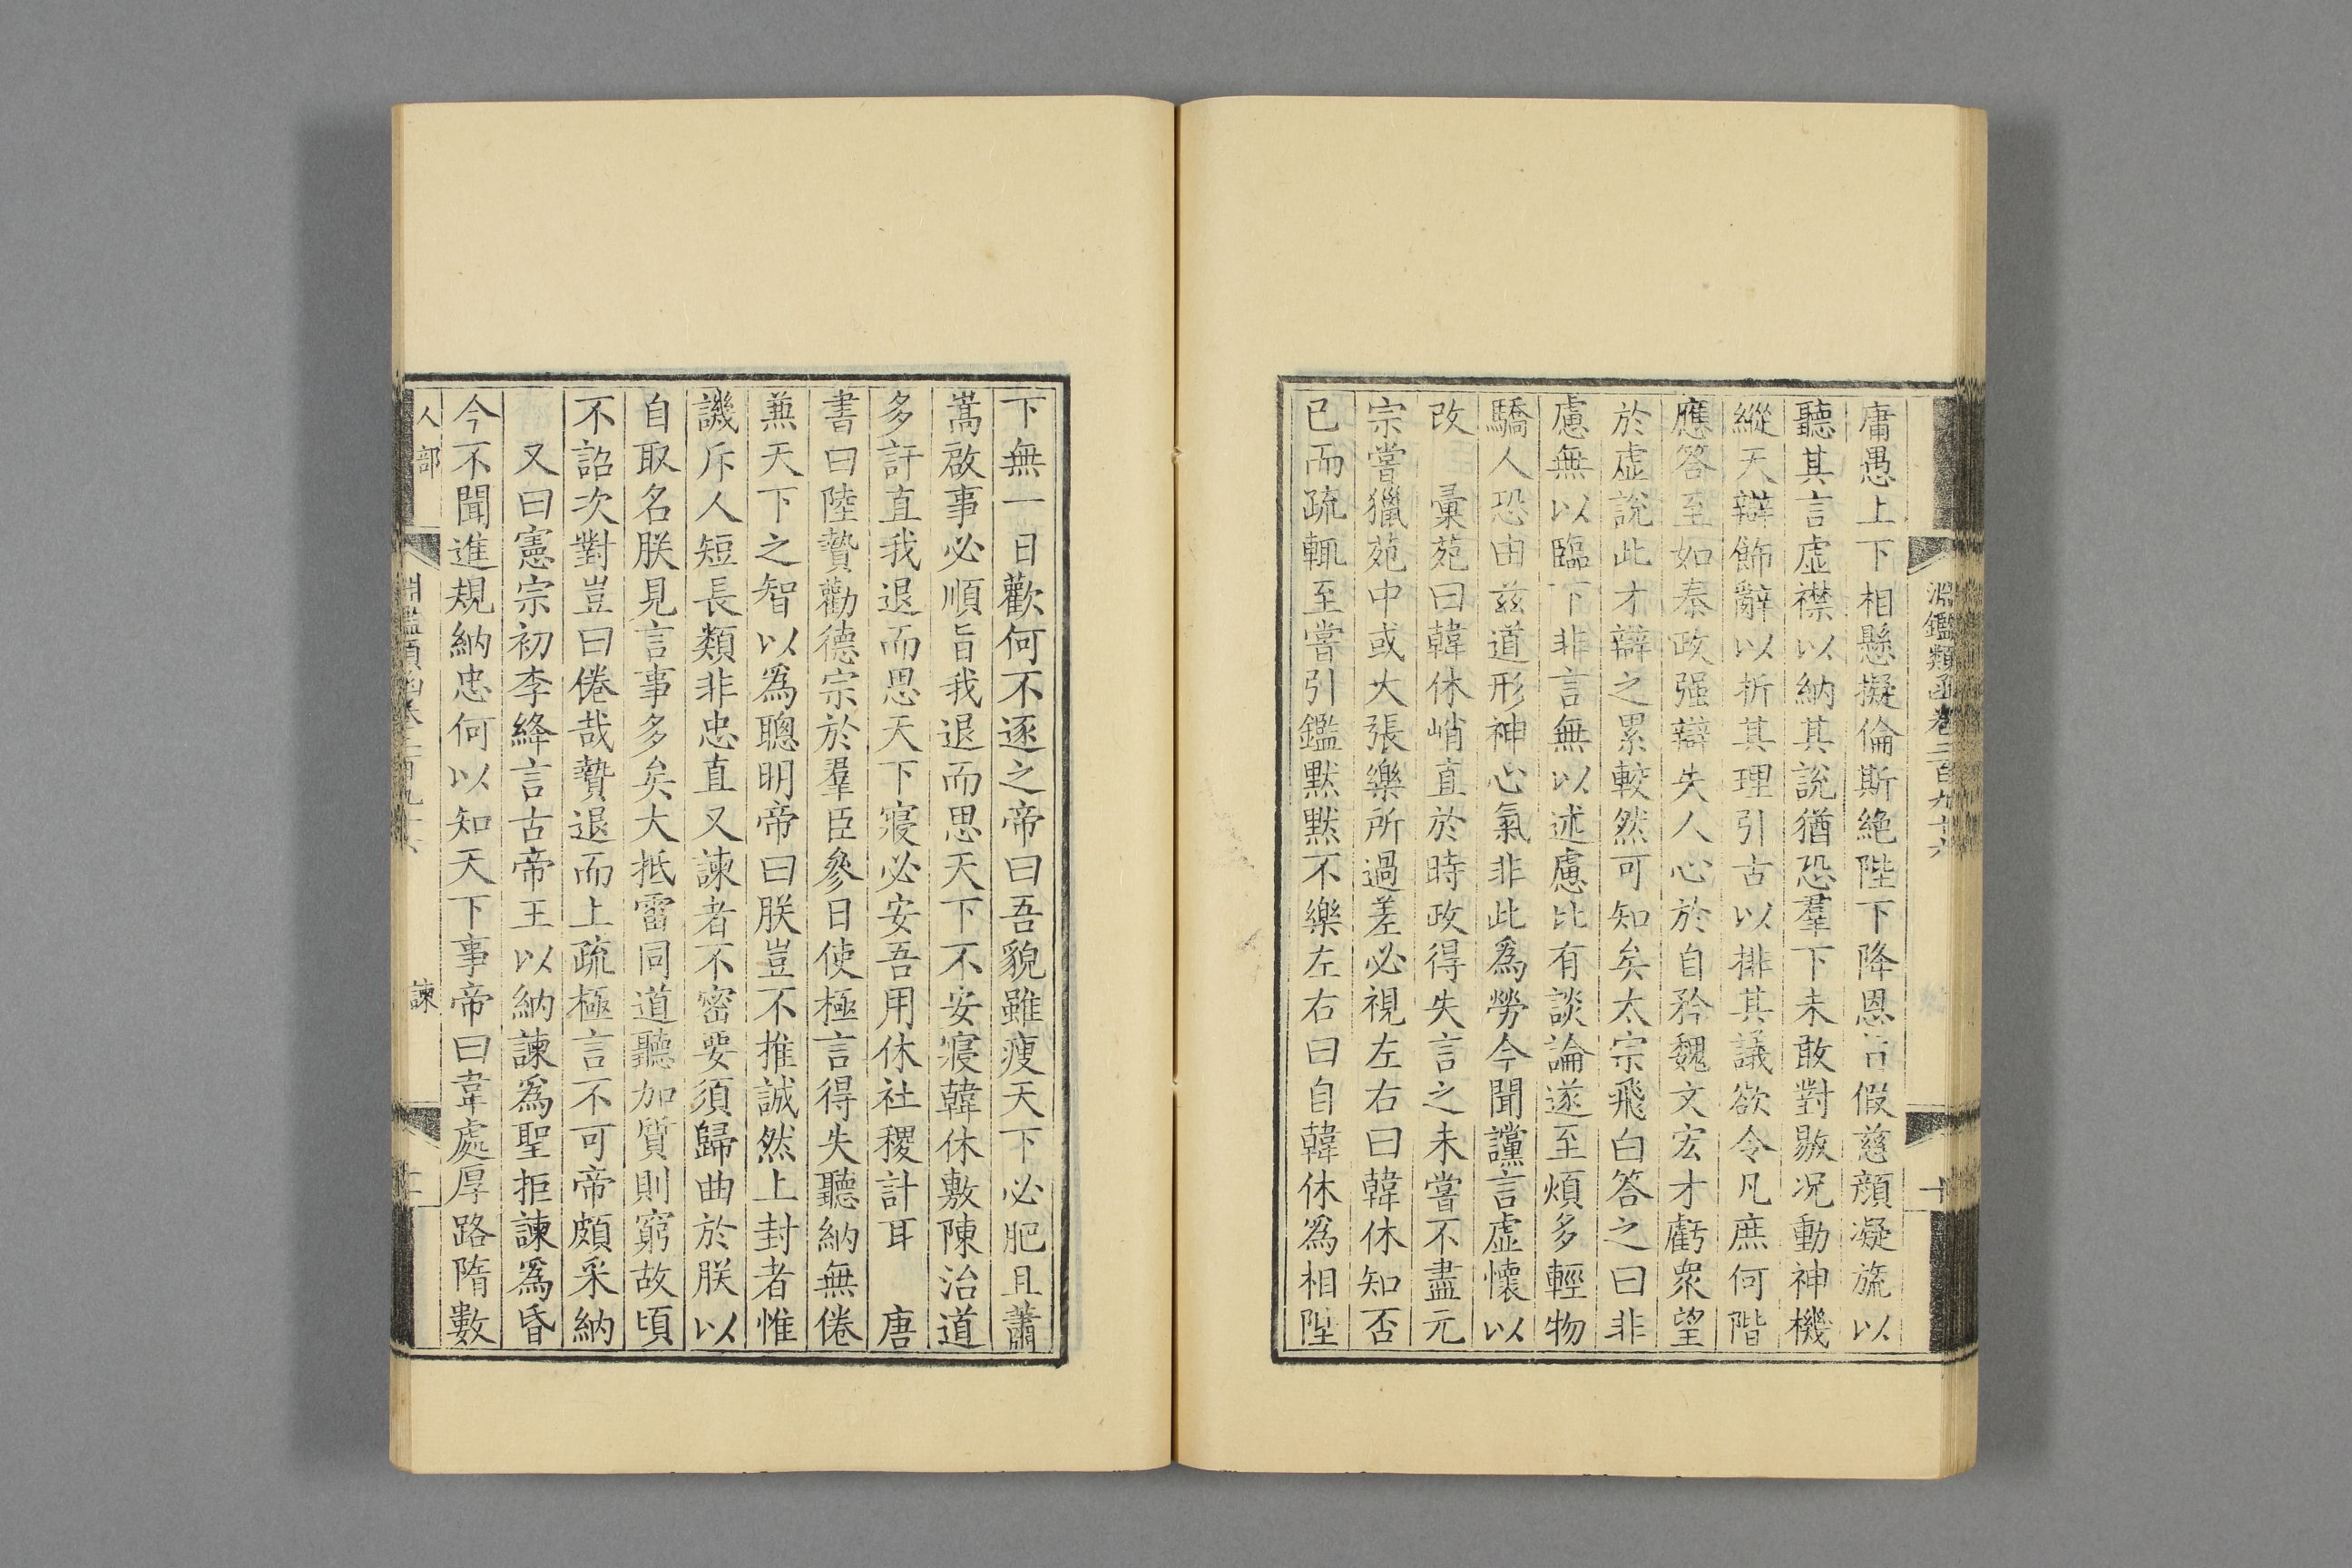 淵鑑類函卷三百九十六
十
庸愚上下相懸擬倫斯絶陛下降恩旨假慈顔凝旒以
聽其言虛襟以納其說猶恐羣下未敢對敭况動神機
縱天辯飾辭以折其理引古以排其議欲令凡庶何階
應答至如秦政强辯失人心於自矜魏文宏才虧衆望
於虛說此才辯之累較然可知矣太宗飛白答之曰非
慮無以臨下非言無以述慮比有談論遂至煩多輕物
驕人恐由兹道形神心氣非此爲勞今聞讜言虛懷以
改　彙苑曰韓休峭直於時政得失言之未嘗不盡元
宗嘗獵苑中或大張樂所過差必視左右曰韓休知否
已而疏輒至嘗引鑑黙黙不樂左右曰自韓休爲相陛
下無一日歡何不逐之帝曰吾貌雖瘦天下必肥且蕭
嵩啟事必順旨我退而思天下不安寢韓休敷陳治道
多訐直我退而思天下寢必安吾用休社稷計耳　唐
書曰陸贄勸德宗於羣臣參日使極言得失聽納無倦
兼天下之智以爲聰明帝曰朕豈不推誠然上封者惟
譏斥人短長類非忠直又諫者不密要須歸曲於朕以
自取名朕見言事多矣大抵雷同道聽加質則窮故頃
不詔次對豈曰倦哉贄退而上疏極言不可帝頗采納
又曰憲宗初李絳言古帝王以納諫爲聖拒諫爲昏
今不聞進規納忠何以知天下事帝曰韋處厚路隋數
人部
淵鑑類函卷三百九十六
諫